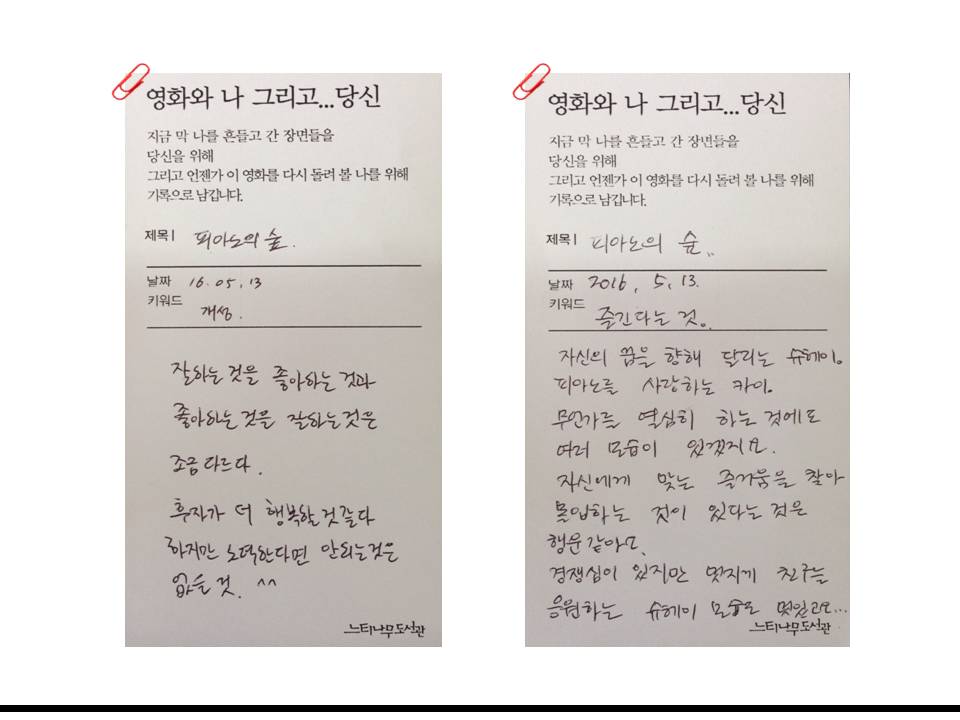 영화와 나 그리고...당신
지금 막 나를 흔들고 간 장면들을
당신을 위해
그리고 언젠가 이 영화를 다시 돌려 볼 나를 위해
기록으로 남깁니다.
제목 | 피아노의 숲.
날짜 16. 05. 13
키워드 개성.
잘하는 것을 좋아하는 것과
좋아하는 것을 잘하는 것은
조금 다르다.
후자가 더 행복할 것 같다
하지만 노력한다면 안되는 것은
없을 것. ^^
느티나무도서관
영화와 나 그리고...당신
지금 막 나를 흔들고 간 장면들을
당신을 위해
그리고 언젠가 이 영화를 다시 돌려 볼 나를 위해
기록으로 남깁니다.
제목 | 피아노의 숲..
날짜 2016. 5. 13.
키워드 즐긴다는 것.
자신의 꿈을 향해 달리는 슈헤이.
피아노를 사랑하는 카이.
무언가를 열심히 하는 것에도
여러 모습이 있겠지요.
자신에게 맞는 즐거움을 찾아
몰입하는 것이 있다는 것은
행운같아요.
경쟁심이 있지만 멋지게 친구를
응원하는 슈헤이 모습도 멋있고요...
느티나무도서관